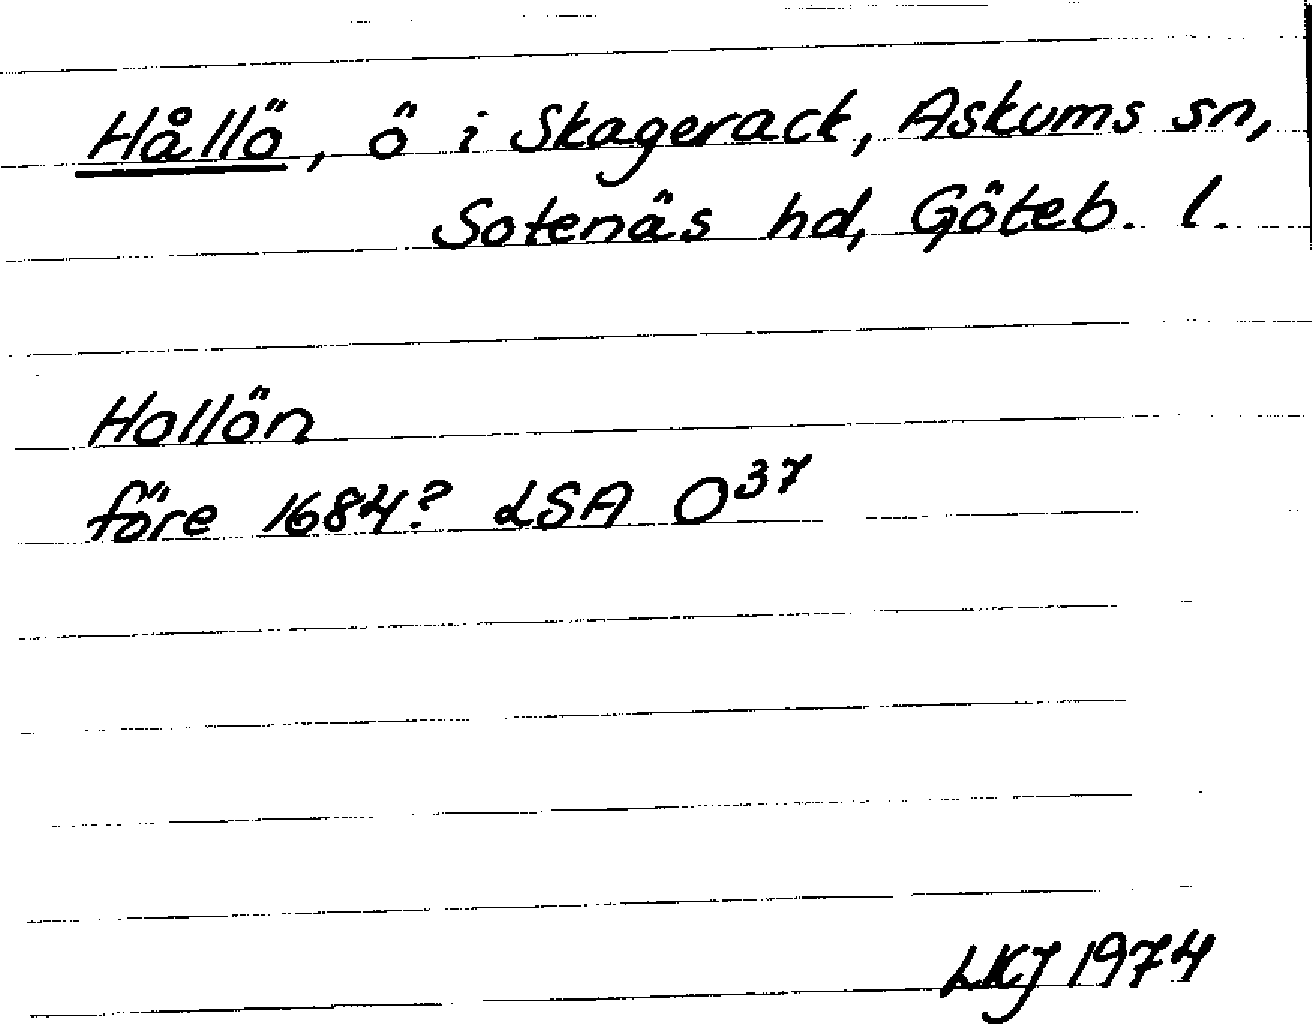 Hållö, ö i Skagerack, Askums sn,
Sotenäs hd, Göteb. l.
Hollön
före 1684? LSA O³⁷
LKJ 1974